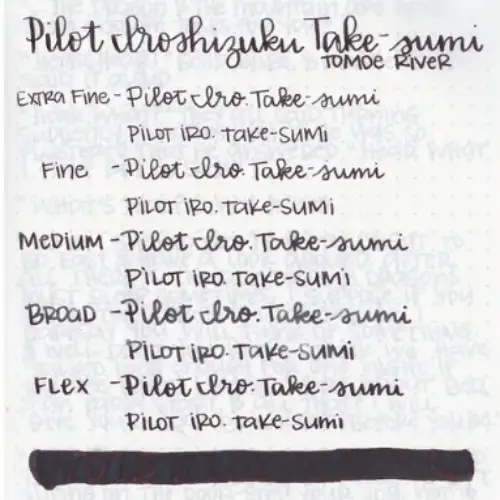 Pilot Iroshizuku Take-sumi
TOMOE RIVER
EXTRA FINE - Pilot Iro. Take-sumi
PILOT IRO. TAKE-SUMI
FINE - Pilot Iro. Take-sumi
PILOT IRO. TAKE-SUMI
MEDIUM - Pilot Iro. Take-sumi
PILOT IRO. TAKE-SUMI
BROAD - Pilot Iro. Take-sumi
PILOT IRO. TAKE-SUMI
FLEX - Pilot Iro. Take-sumi
PILOT IRO. TAKE-SUMI